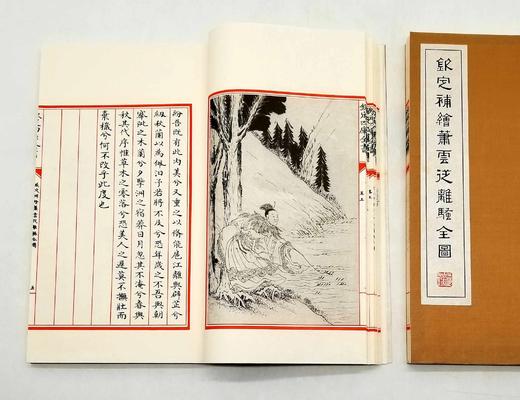 紛吾既有此內美兮又重之以脩能扈江離與辟芷兮
紉秋蘭以為佩汨予若將不及兮恐年歲之不吾與朝
搴阰之木蘭兮夕擥洲之宿莽日月忽其不淹兮春與
秋其代序惟草木之零落兮恐美人之遲莫不撫壯而
棄穢兮何不改乎此度也
欽定補繪蕭雲從離騷全圖